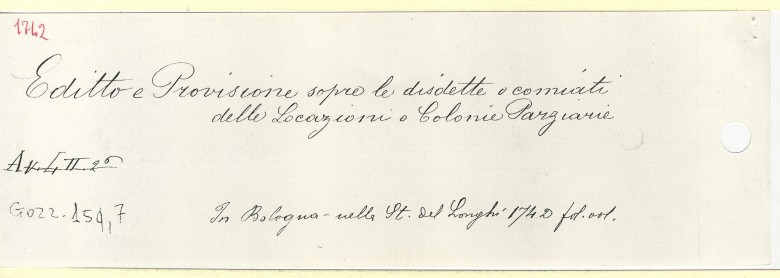 1742
Editto e Provisione sopre le disdette o comiati
delle Locazioni o Colonie Parziarie
AV. 4 II. 26
Gozz. 154,7
In Bologna - nella St. del Longhi 1742 fol. vol.